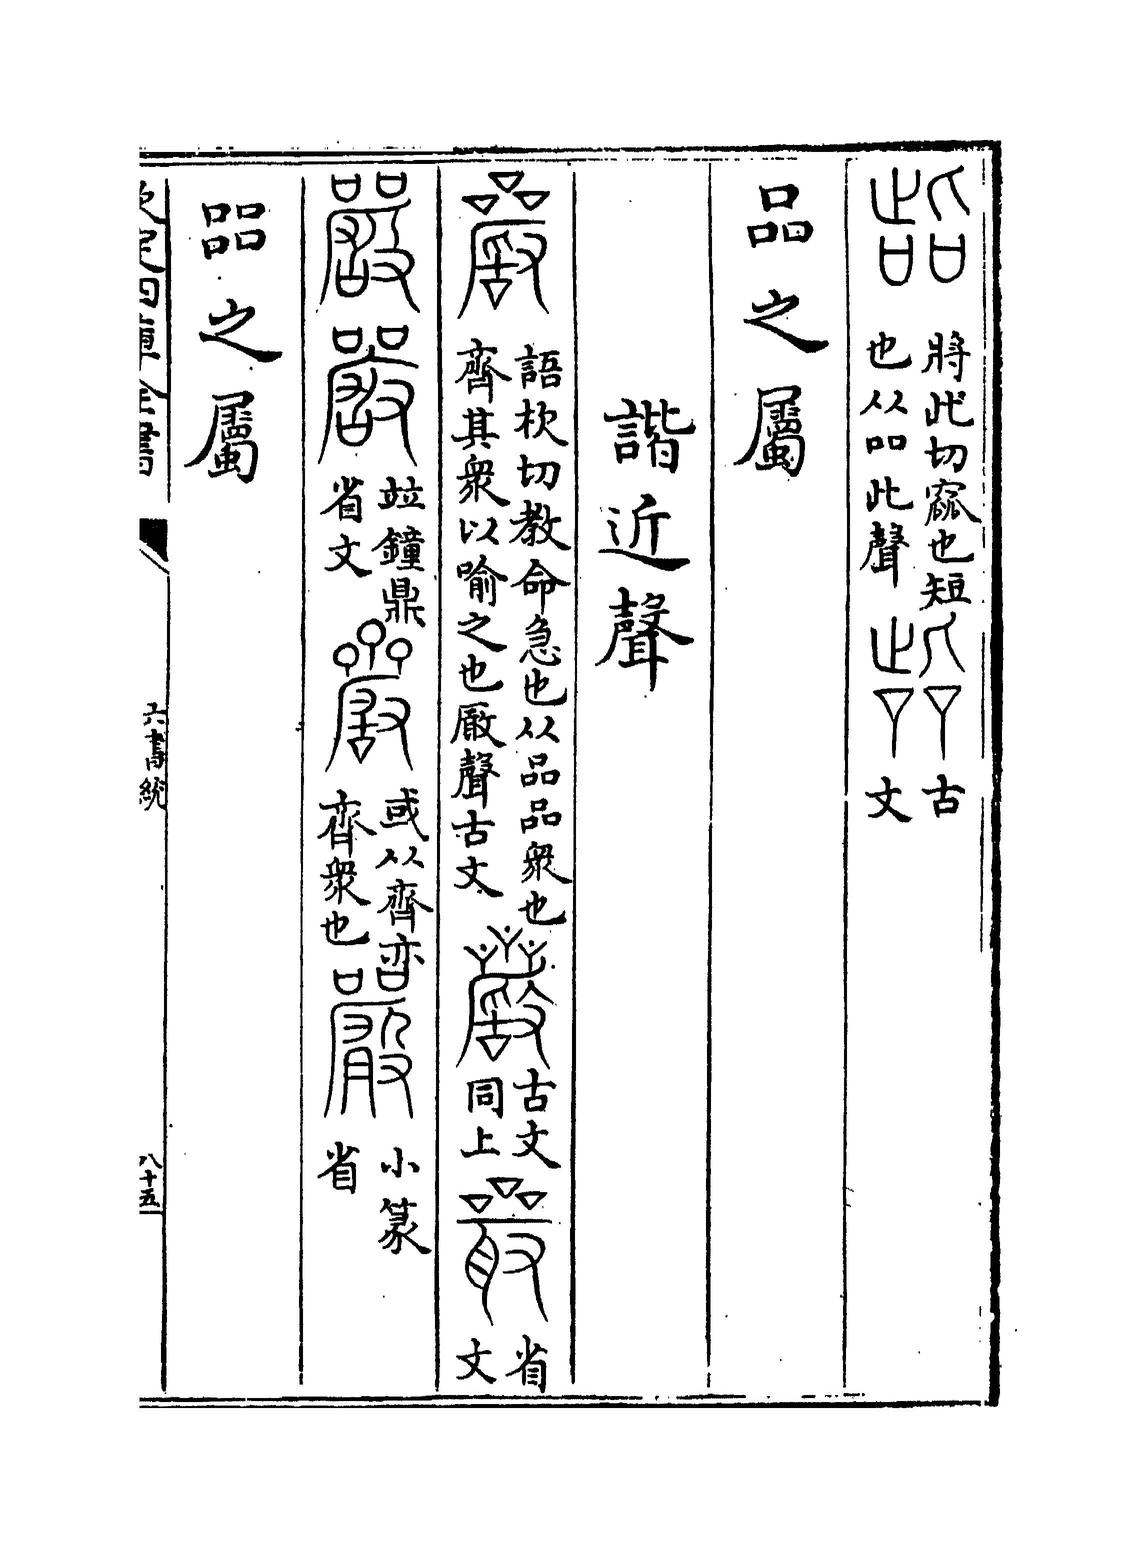 將此切窳也短
也从吅此聲
古
文
品之屬
諧近聲
語杴切教命急也从品品衆也
齊其衆以喻之也厰聲古文
古文
同上
省
文
竝鐘鼎
省文
或从齊
齊衆也
小篆
省
㗊之屬
欽定四庫全書
六書統
八十五